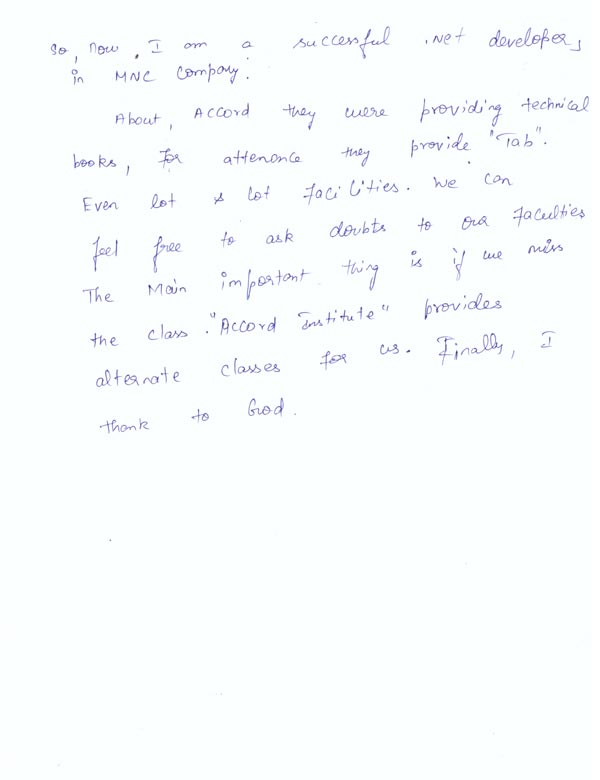 So, now, I am a successful .Net developer,
in MNC Company.
About, Accord they were providing technical
books, for attenance they provide "Tab".
Even lot & lot facilities. We can
feel free to ask doubts to our faculties
The Main important thing is if we miss
the class. "Accord Institute" provides
alternate classes for us. Finally, I
thank to God.